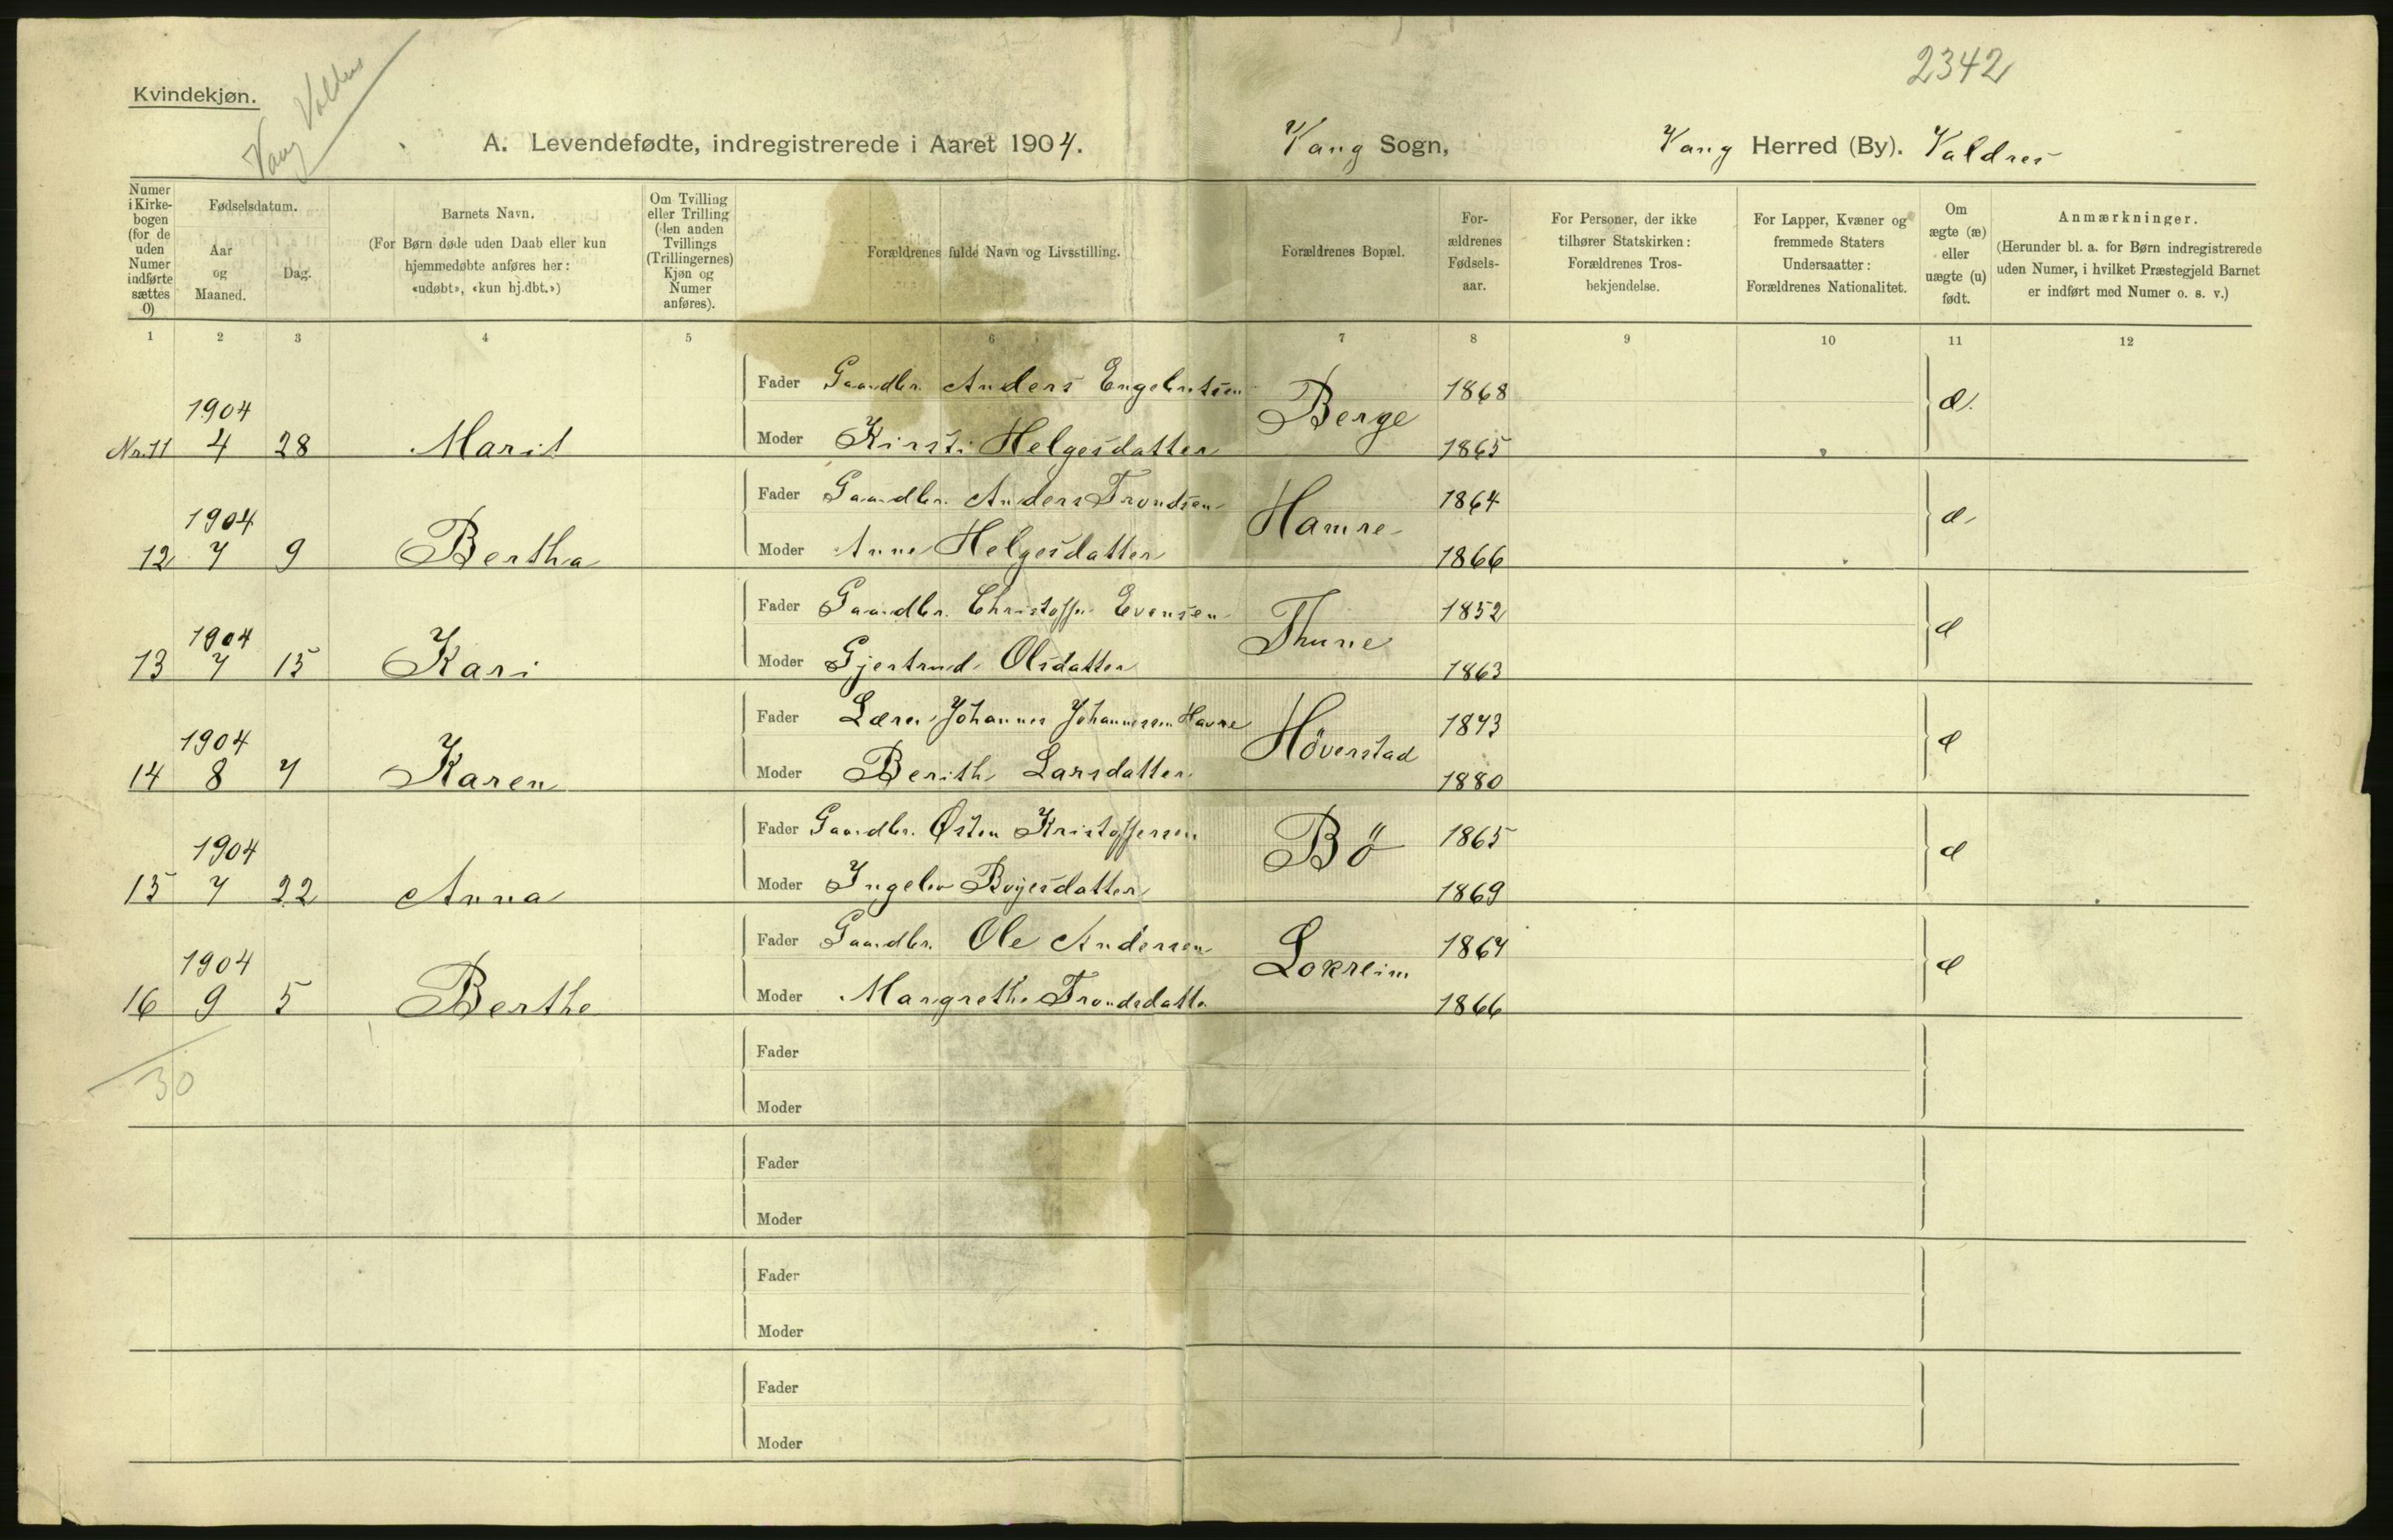 2342
Kvindekjøn.
Vang Valdres
A. Levendefødte, indregistrerede i Aaret 1904.
Vang Sogn,
Vang Herred (By). Valdres
Numer
i Kirke-
bogen
(for de
uden
Numer
indførte
sættes
0)
Fødselsdatum.
Aar
og
Maaned.
Dag.
Barnets Navn.
(For Børn døde uden Daab eller kun
hjemmedøbte anføres her:
«udøbt», «kun hj.dbt.»)
Om Tvilling
eller Trilling
(den anden
Tvillings
(Trillingernes)
Kjøn og
Numer
anføres).
Forældrenes fulde Navn og Livsstilling.
Forældrenes Bopæl.
For-
ældrenes
Fødsels-
aar.
For Personer, der ikke
tilhører Statskirken:
Forældrenes Tros-
bekjendelse.
For Lapper, Kvæner og
fremmede Staters
Undersaatter:
Forældrenes Nationalitet.
Om
ægte (æ)
eller
uægte (u)
født.
Anmærkninger.
(Herunder bl. a. for Børn indregistrerede
uden Numer, i hvilket Præstegjeld Barnet
er indført med Numer o. s. v.)
1 2 3 4 5 6 7 8 9 10 11 12
Fader Gaardbr. Anders Engebretsen Berge 1868 æ.
1904
Nr. 11 4 28 Marit Moder Kirsti Helgesdatter 1865
Fader Gaardbr. Anders Trondsen Hamre 1864 æ
1904
12 7 9 Bertha Moder Anne Helgesdatter 1866
Fader Gaardbr. Christoffer Evensen Thune 1852 æ
1904
13 7 15 Kari Moder Gjertrud Olsdatter 1863
Fader Lærer Johannes Johannessen Havre Höverstad 1873 æ
1904
14 8 7 Karen Moder Berith Larsdatter 1880
Fader Gaardbr. Østen Kristoffersen Bö 1865 æ
1904
15 7 22 Anna Moder Ingeleiv Boyesdatter 1869
Fader Gaardbr. Ole Andersen Lokreim 1867 æ
1904
16 9 5 Berthe Moder Margrethe Trondsdatter 1866
30
Fader
Moder
Fader
Moder
Fader
Moder
Fader
Moder